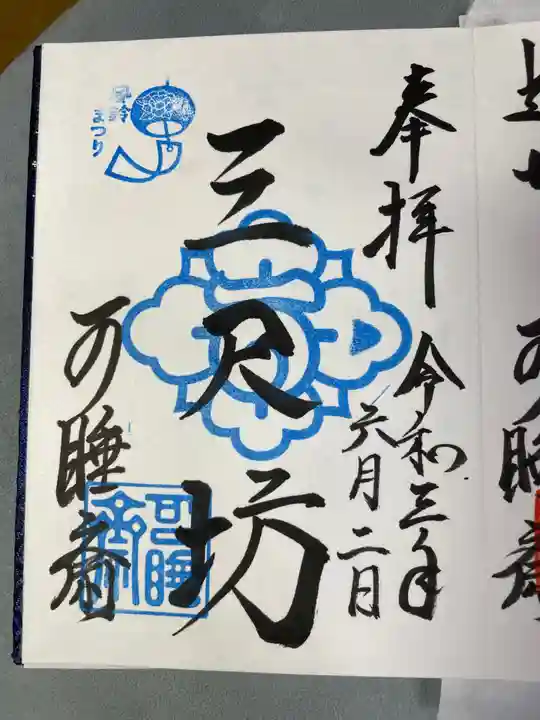 奉拝
令和三年
六月二日
三尺坊
可睡斎
風鈴
まつり
可睡
可睡斎